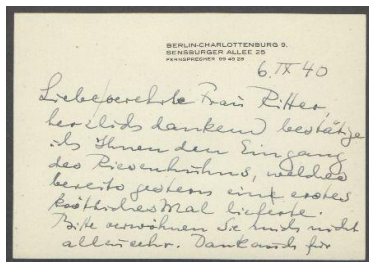 BERLIN-CHARLOTTENBURG 9.
SENSBURGER ALLEE 25
FERNSPRECHER 99 46 28
6. IX 40
Liebe verehrte Frau Ritter,
herzlich dankend bestätige
ich Ihnen den Eingang
des Riesenhuhns, welches
bereits gestern ein erstes
köstliches Mal lieferte.
Bitte verwöhnen Sie mich nicht
allzusehr. Dankauch für